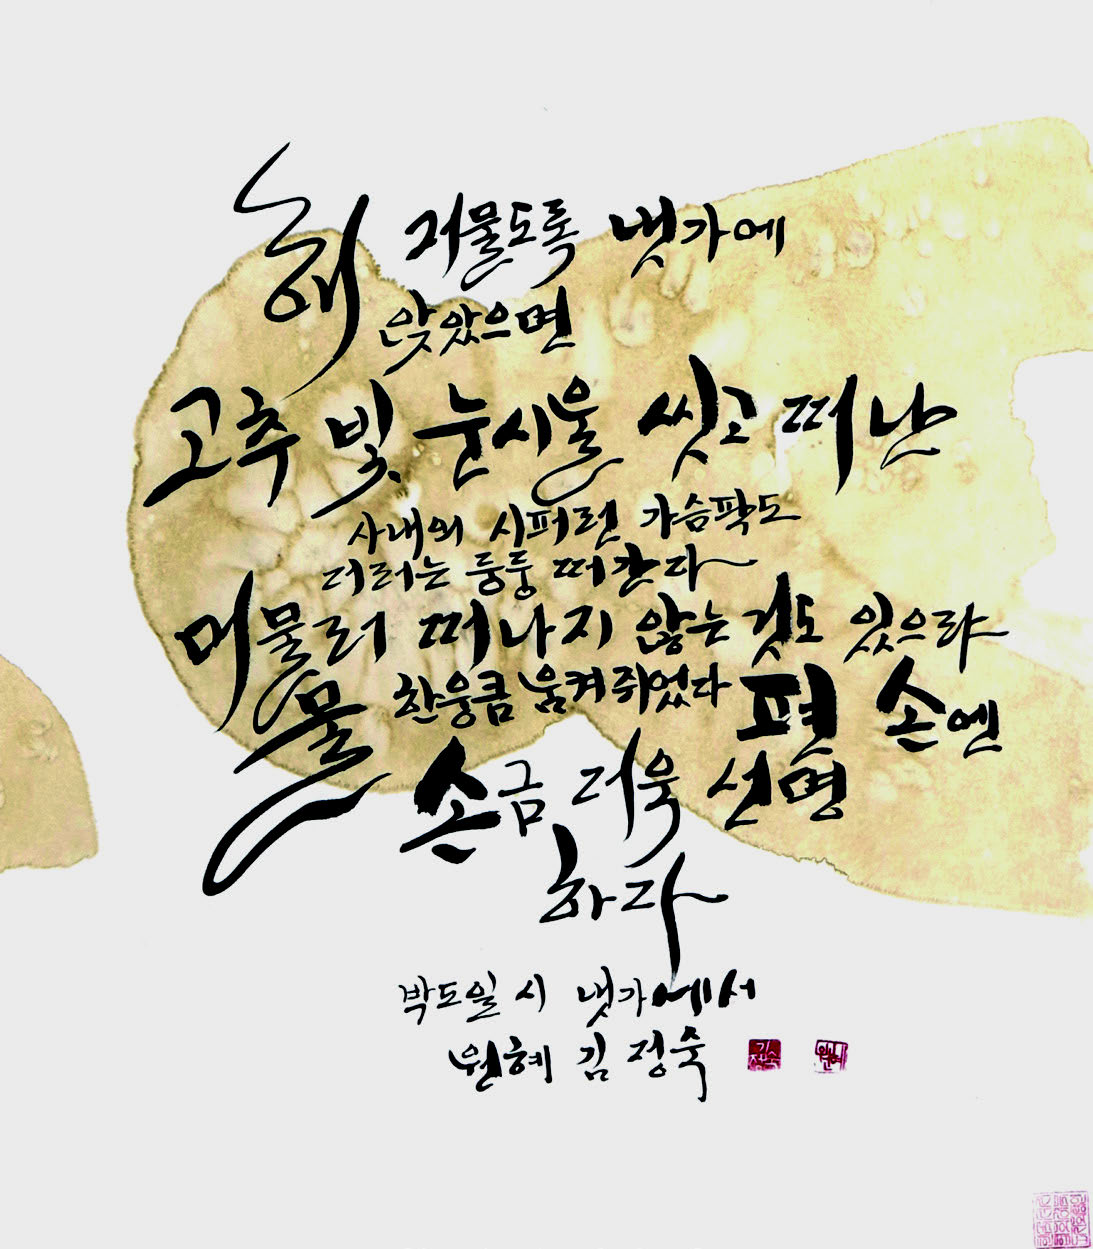 해 저물도록 냇가에
앉았으면
고추 빛 눈시울 씻고 떠난
사내의 시퍼런 가슴팍도
더러는 둥둥 떠간다
머물러 떠나지 않는 것도 있으랴
물 한웅큼 움켜쥐었다 편 손엔
손금 더욱 선명
하라
박도일 시 냇가에서
원혜 김정숙
김정숙
원혜